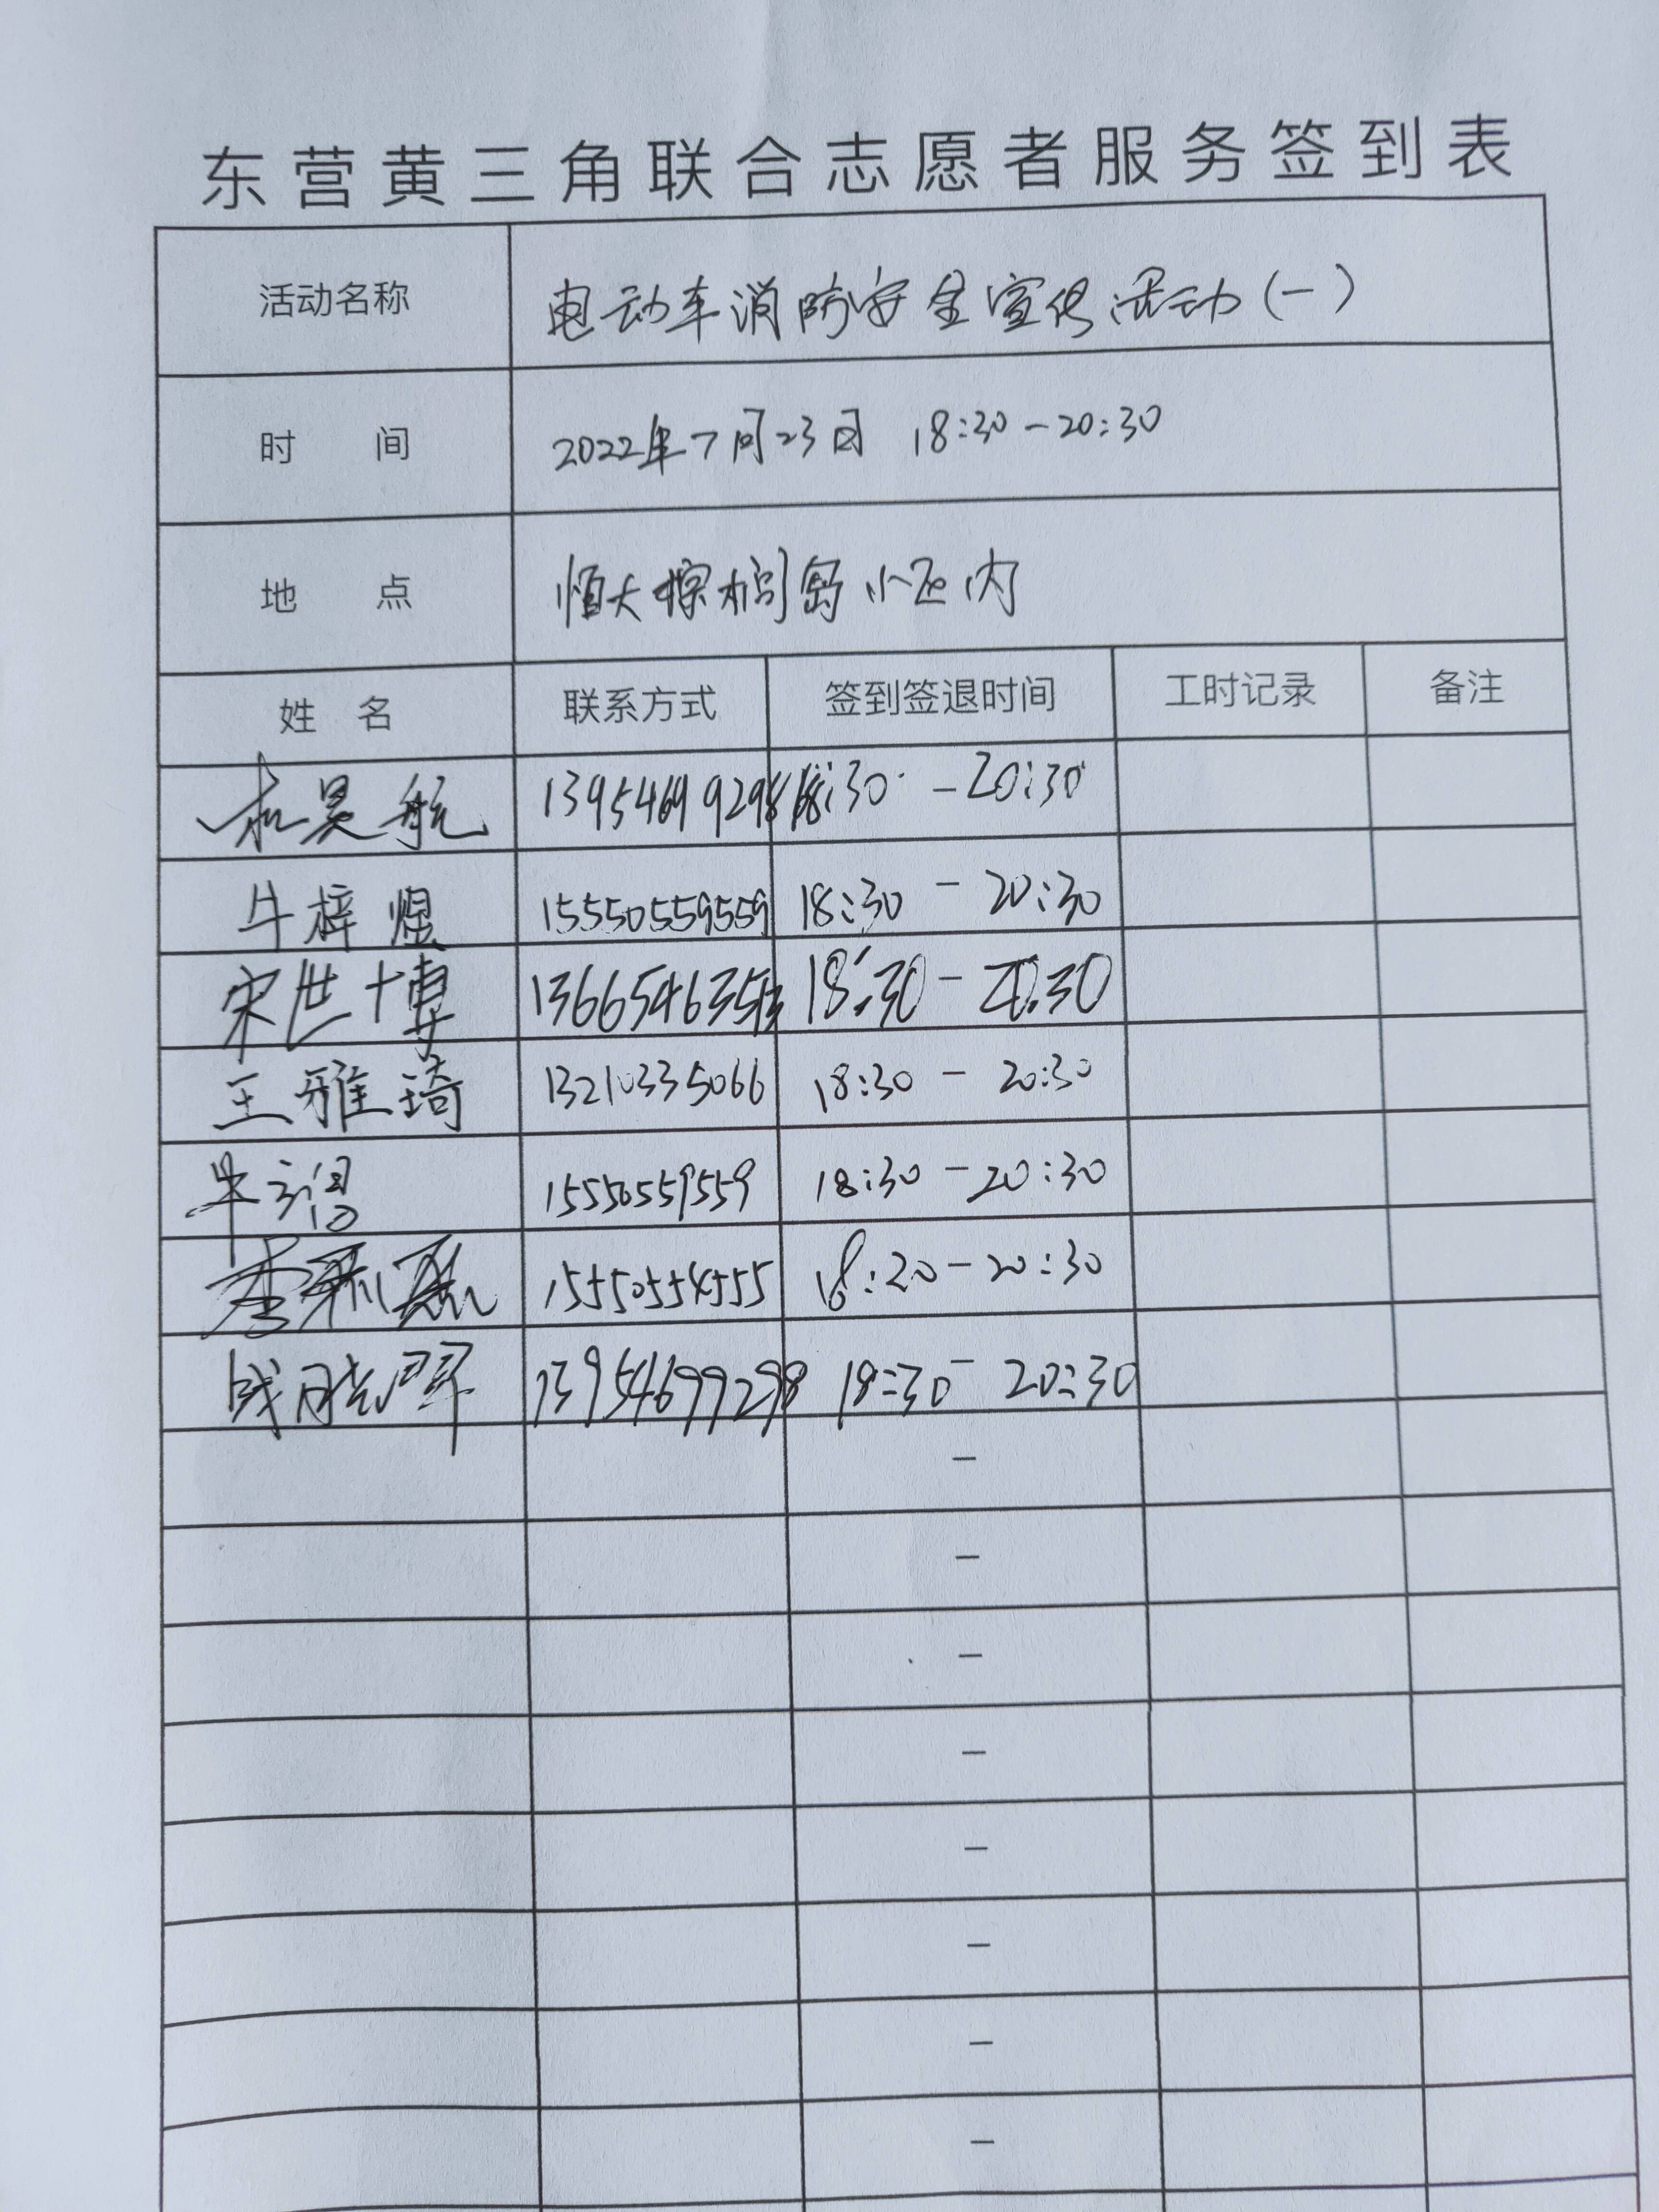 东营黄三角联合志愿者服务签到表
活动名称 电动车消防安全宣传活动(一)
时 间 2022年7月23日 18:30-20:30
地 点 恒大棕榈岛小区内
姓 名 联系方式 签到签退时间 工时记录 备注
昊航 18:30 - 20:30
牛梓煜 15550559559 18:30 - 20:30
宋世博 18:30 - 20:30
王雅琦 13210335066 18:30 - 20:30
15550559559 18:30 - 20:30
15550554555 20:30
战 13954699298 18:30 - 20:30
-
-
-
-
-
-
-
-